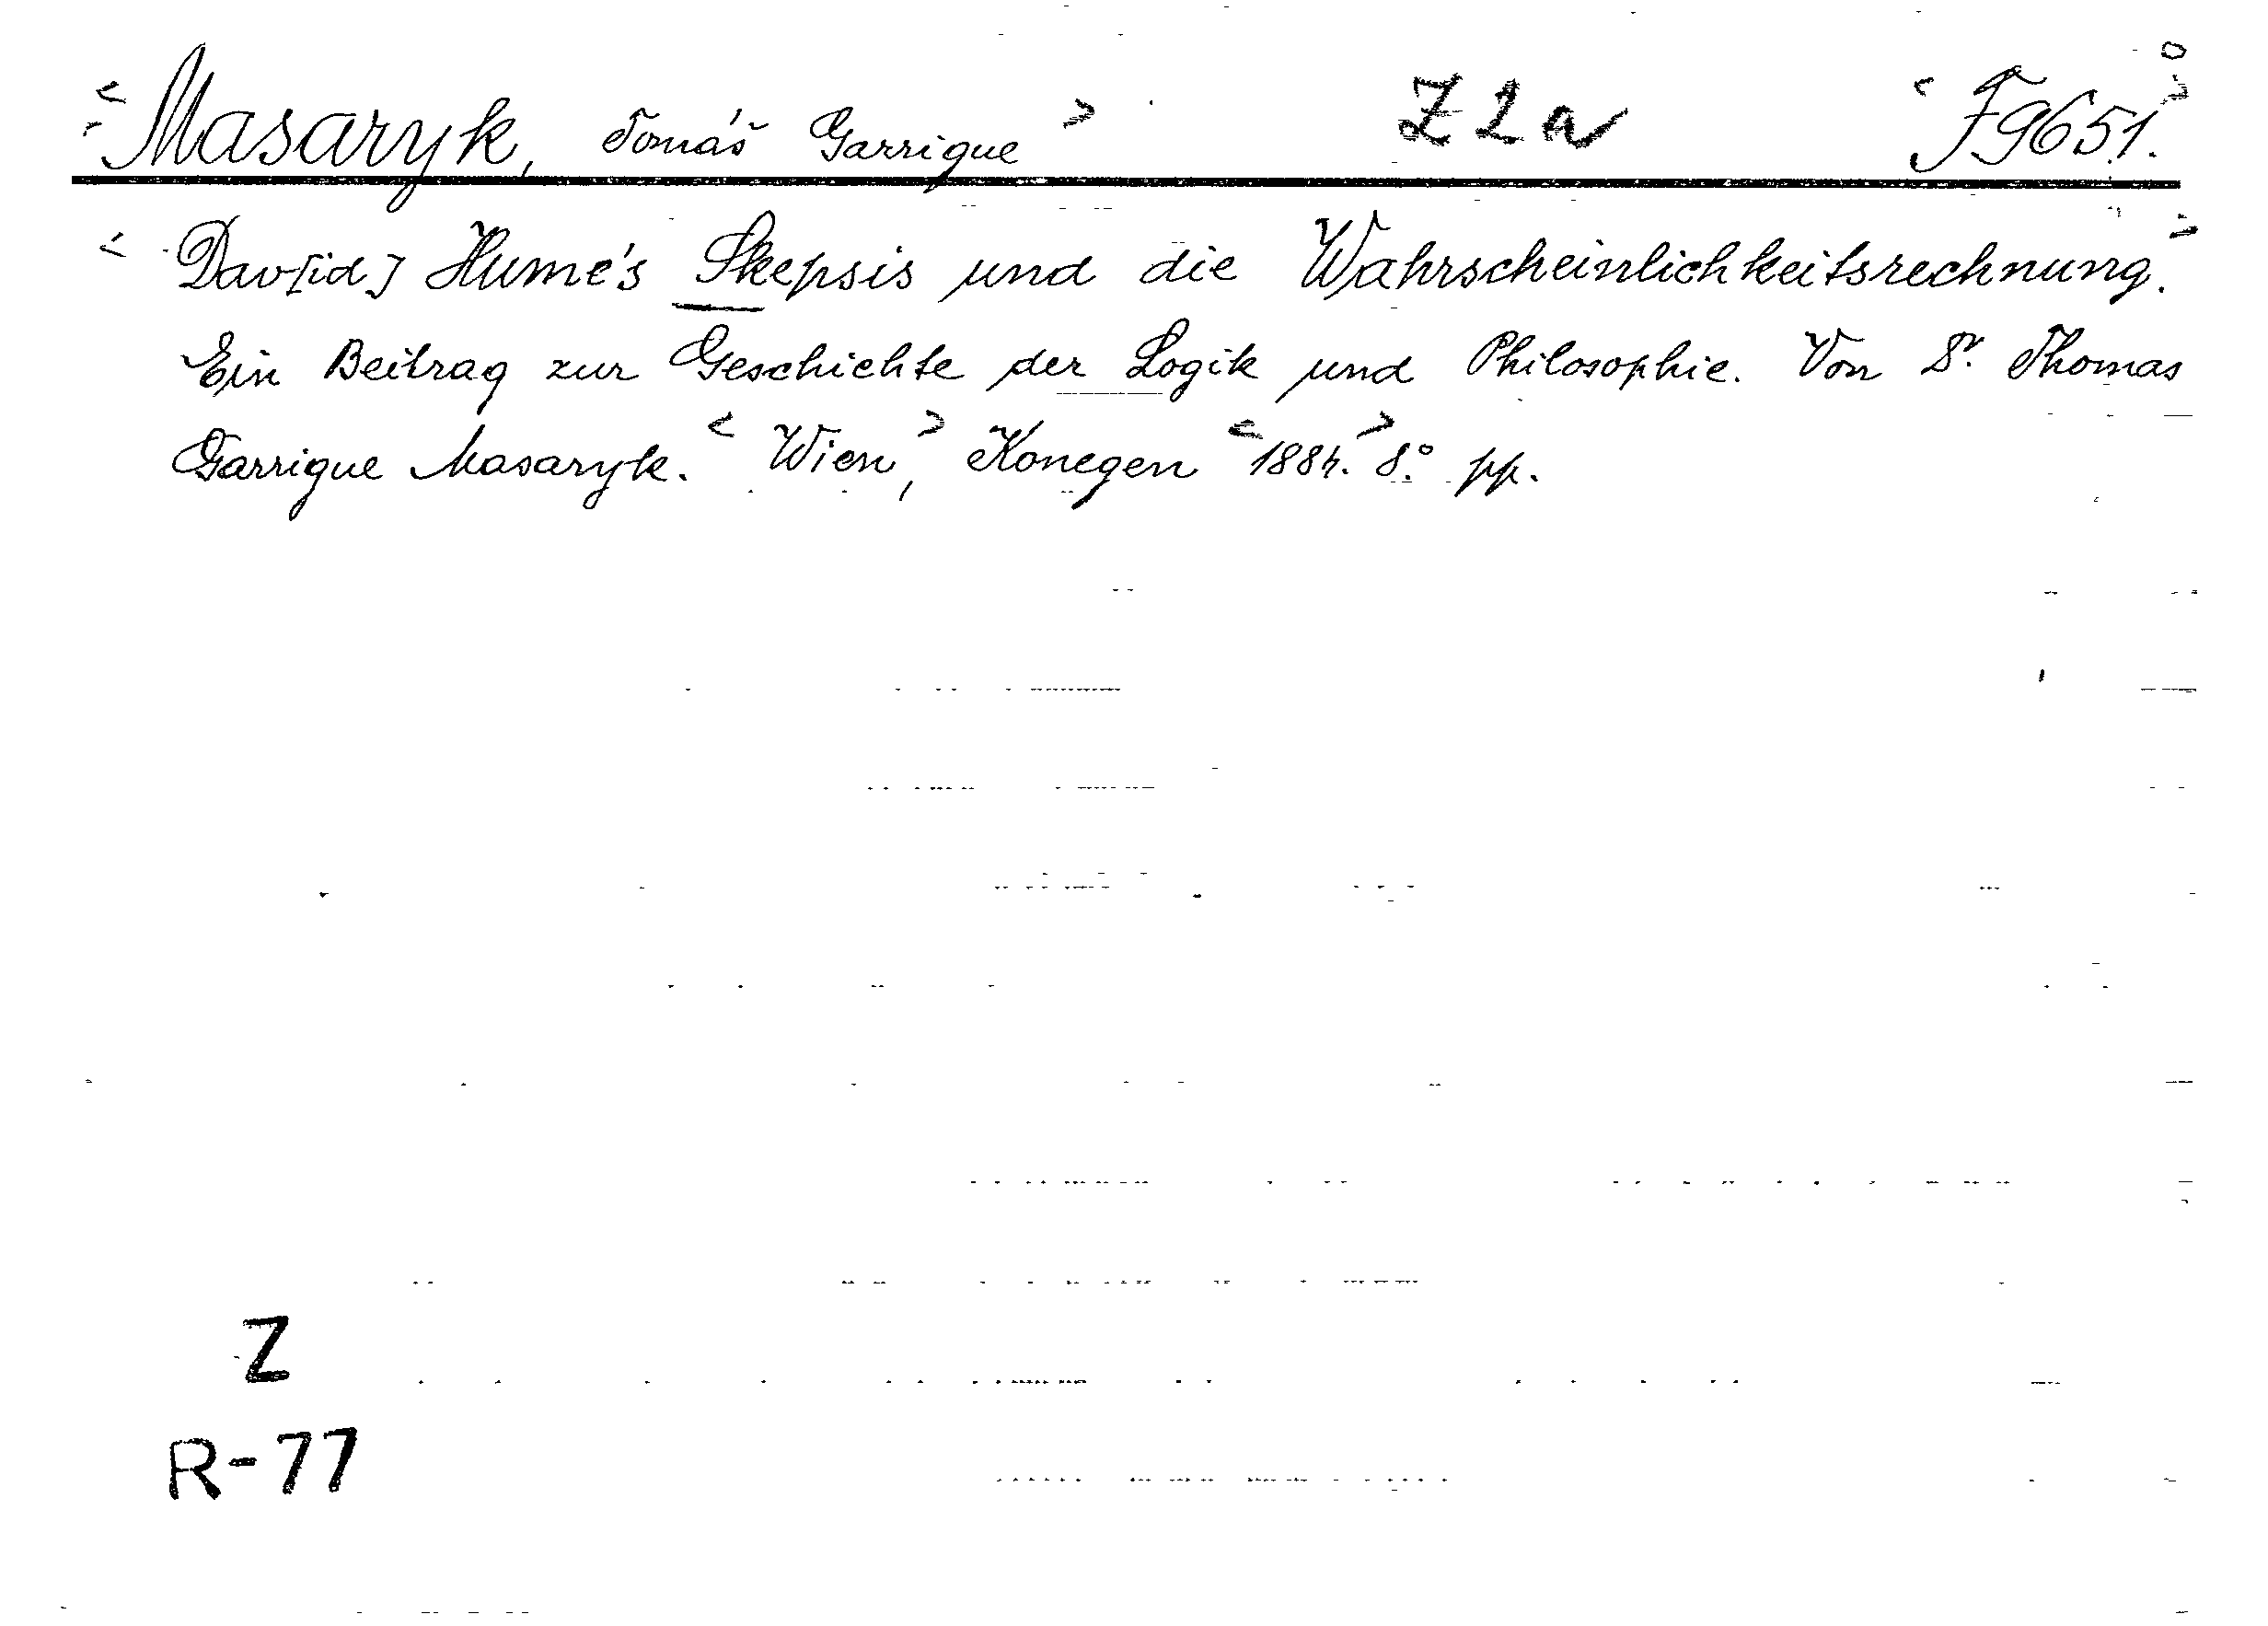 <Masaryk, Tomáš Garrigue> Z2a <F9651.>
<Dav[id] Hume's Skepsis und die Wahrscheinlichkeitsrechnung.>
Ein Beitrag zur Geschichte der Logik und Philosophie. Von Dr. Thomas
Garrigue Masaryk. <Wien,> Konegen <1884.> 8.° pp.
Z
R-77